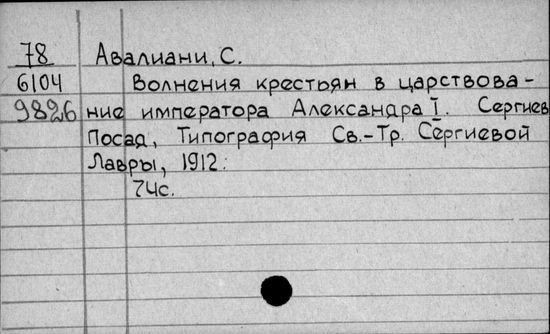 78 Авалиани, С.
6104 Волнения крестьян в царствова-
9826 ние императора Александра I. Сергиев
Посад, Типография Св.-Тр. Сергиевой
Лавры, 1912.
74с.